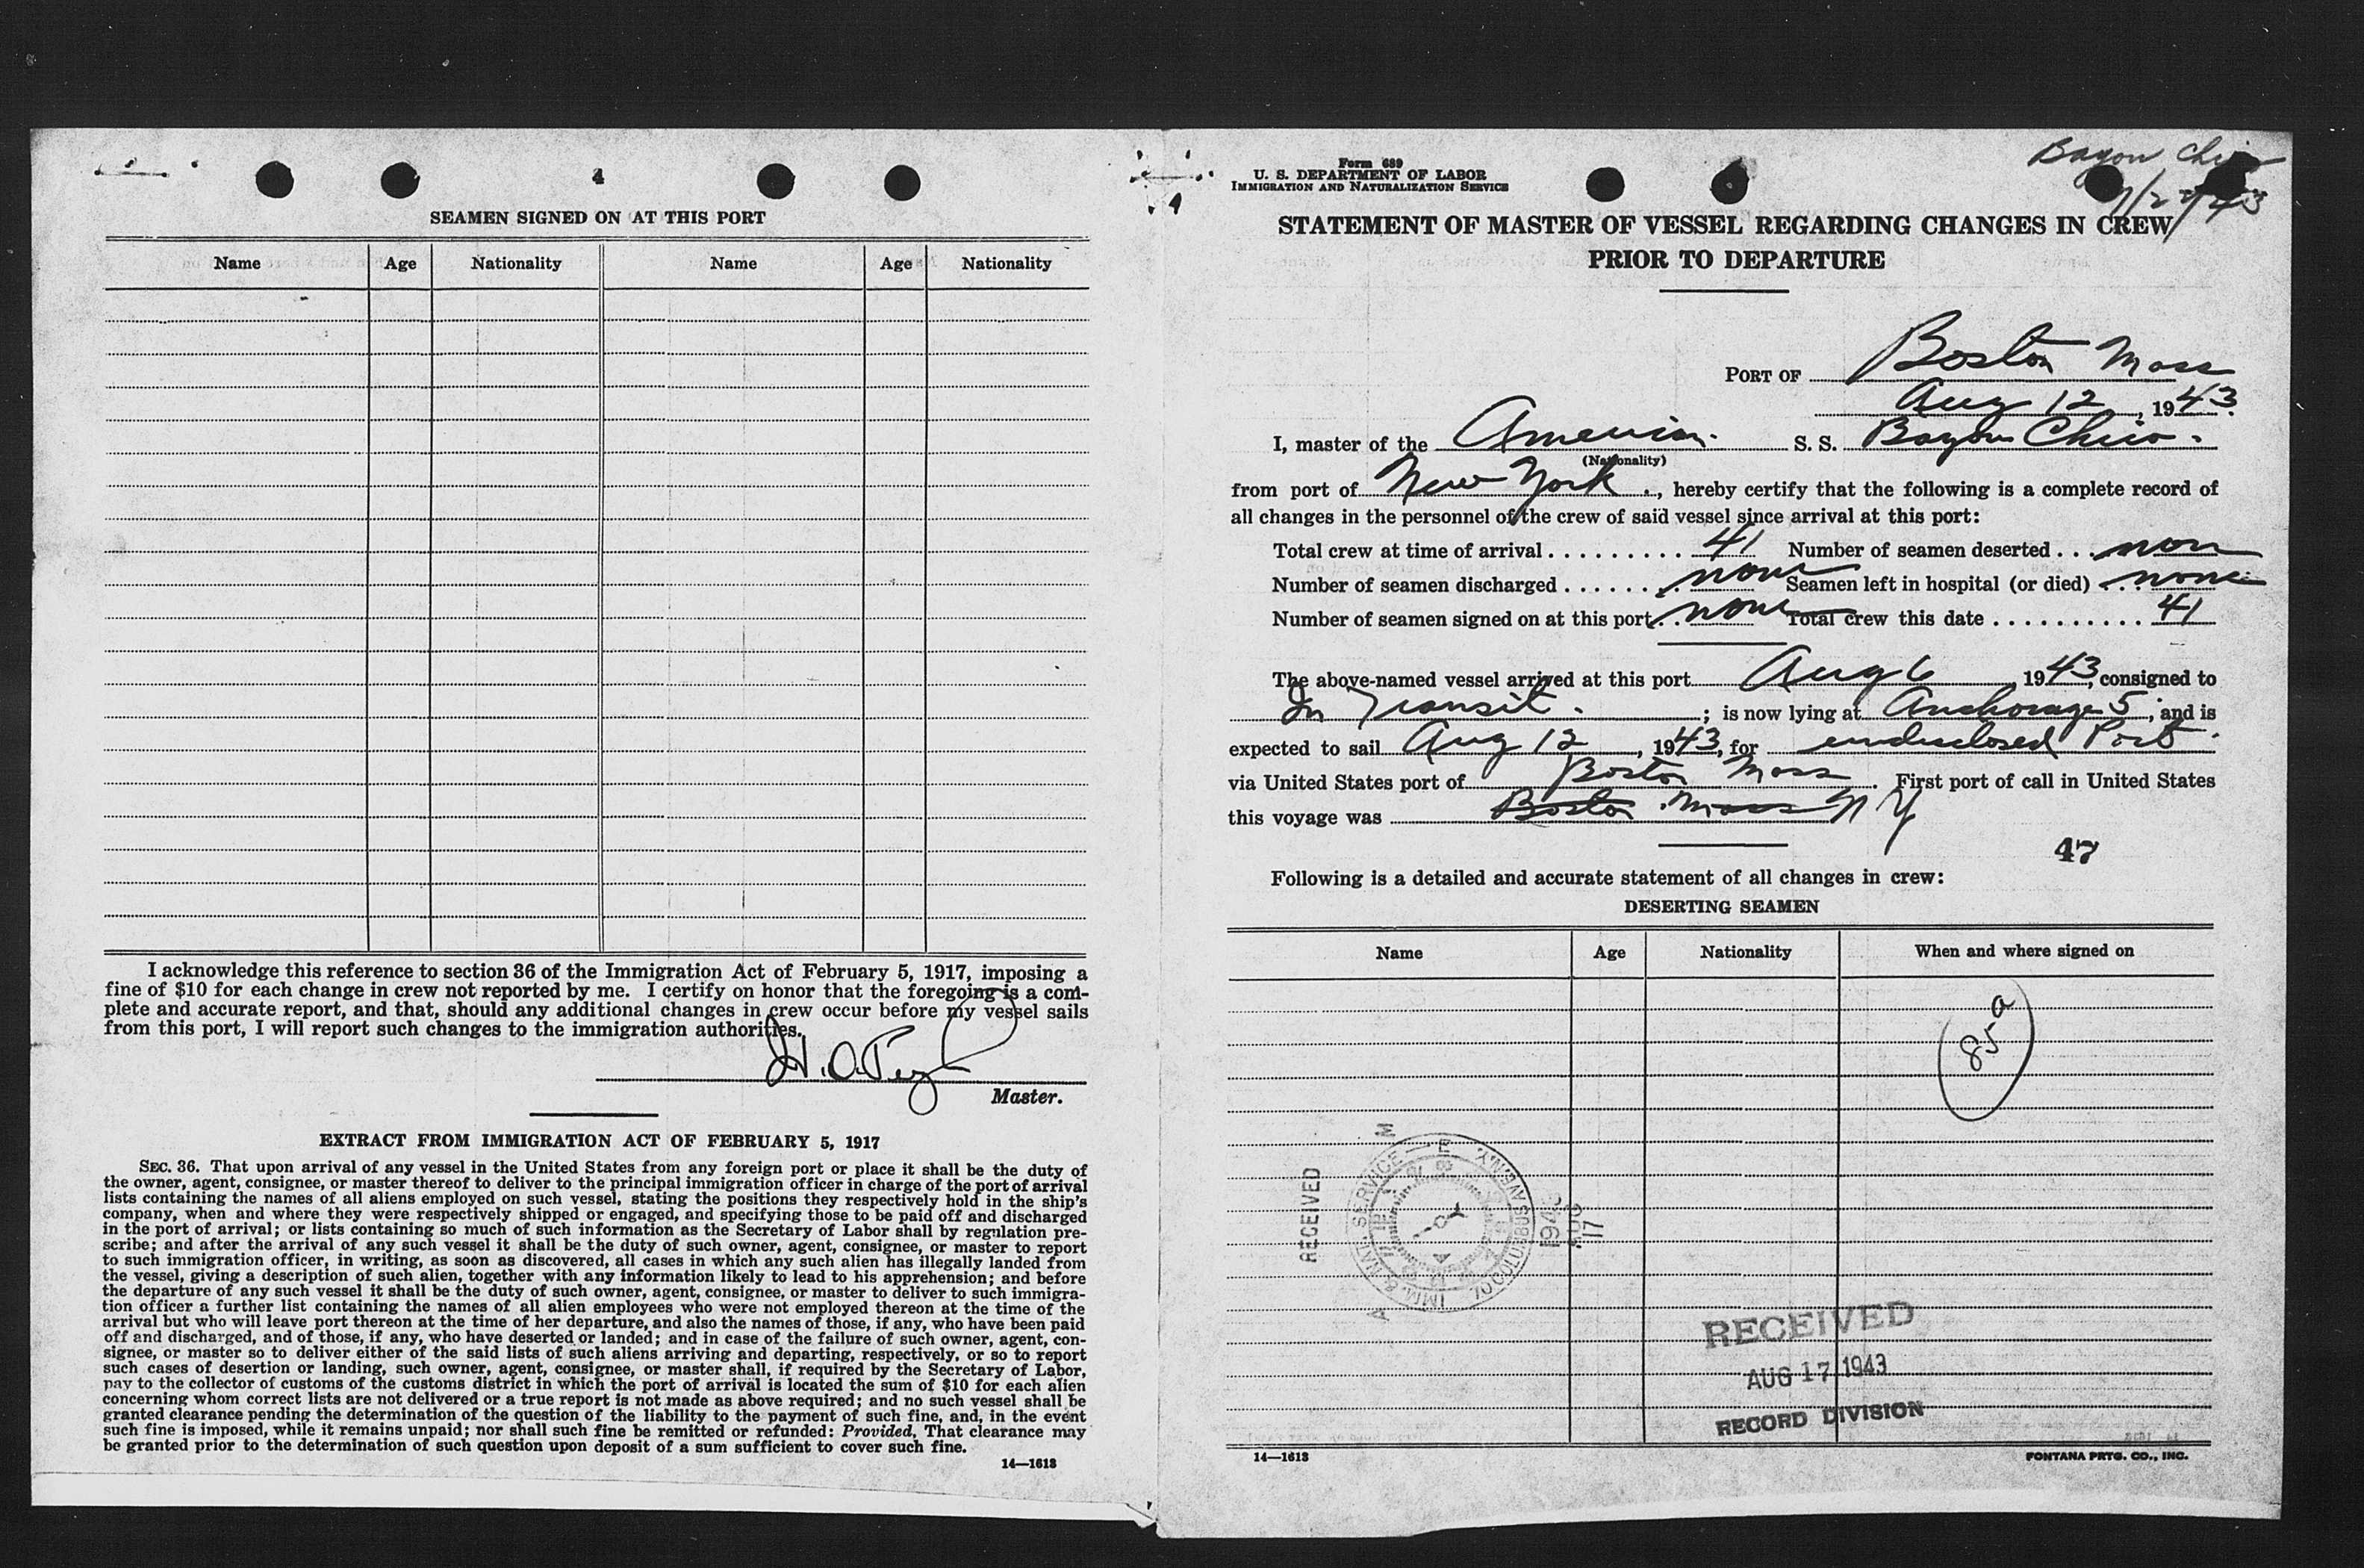 4
SEAMEN SIGNED ON AT THIS PORT
Name Age Nationality Name Age Nationality
I acknowledge this reference to section 36 of the Immigration Act of February 5, 1917, imposing a
fine of $10 for each change in crew not reported by me. I certify on honor that the foregoing is a com-
plete and accurate report, and that, should any additional changes in crew occur before my vessel sails
from this port, I will report such changes to the immigration authorities.
H. O.
Master.
EXTRACT FROM IMMIGRATION ACT OF FEBRUARY 5, 1917
SEC. 36. That upon arrival of any vessel in the United States from any foreign port or place it shall be the duty of
the owner, agent, consignee, or master thereof to deliver to the principal immigration officer in charge of the port of arrival
lists containing the names of all aliens employed on such vessel, stating the positions they respectively hold in the ship's
company, when and where they were respectively shipped or engaged, and specifying those to be paid off and discharged
in the port of arrival; or lists containing so much of such information as the Secretary of Labor shall by regulation pre-
scribe; and after the arrival of any such vessel it shall be the duty of such owner, agent, consignee, or master to report
to such immigration officer, in writing, as soon as discovered, all cases in which any such alien has illegally landed from
the vessel, giving a description of such alien, together with any information likely to lead to his apprehension; and before
the departure of any such vessel it shall be the duty of such owner, agent, consignee, or master to deliver to such immigra-
tion officer a further list containing the names of all alien employees who were not employed thereon at the time of the
arrival but who will leave port thereon at the time of her departure, and also the names of those, if any, who have been paid
off and discharged, and of those, if any, who have deserted or landed; and in case of the failure of such owner, agent, con-
signee, or master so to deliver either of the said lists of such aliens arriving and departing, respectively, or so to report
such cases of desertion or landing, such owner, agent, consignee, or master shall, if required by the Secretary of Labor,
pay to the collector of customs of the customs district in which the port of arrival is located the sum of $10 for each alien
concerning whom correct lists are not delivered or a true report is not made as above required; and no such vessel shall be
granted clearance pending the determination of the question of the liability to the payment of such fine, and, in the event
such fine is imposed, while it remains unpaid; nor shall such fine be remitted or refunded: Provided, That clearance may
be granted prior to the determination of such question upon deposit of a sum sufficient to cover such fine.
14—1613
Form 689
U. S. DEPARTMENT OF LABOR
IMMIGRATION AND NATURALIZATION SERVICE
Bayou Chico
STATEMENT OF MASTER OF VESSEL REGARDING CHANGES IN CREW
PRIOR TO DEPARTURE
PORT OF Boston Mass
Aug 12, 1943.
I, master of the American S. S. Bayou Chico.
(Nationality)
from port of New York, hereby certify that the following is a complete record of
all changes in the personnel of the crew of said vessel since arrival at this port:
Total crew at time of arrival 41 Number of seamen deserted none
Number of seamen discharged none Seamen left in hospital (or died) none
Number of seamen signed on at this port none Total crew this date 41
The above-named vessel arrived at this port Aug 6, 1943, consigned to
In Transit. ; is now lying at Anchorage 5; and is
expected to sail Aug 12, 1943, for undisclosed Port.
via United States port of Boston Mass. First port of call in United States
this voyage was Boston Mass N Y
47
Following is a detailed and accurate statement of all changes in crew:
DESERTING SEAMEN
Name Age Nationality When and where signed on
85a
RECEIVED
IMM. & NAT. SERVICE
70 COLUMBUS AV. N.Y.
1943
AUG
17
RECEIVED
AUG 17 1943
RECORD DIVISION
14—1613
FONTANA PRTG. CO., INC.